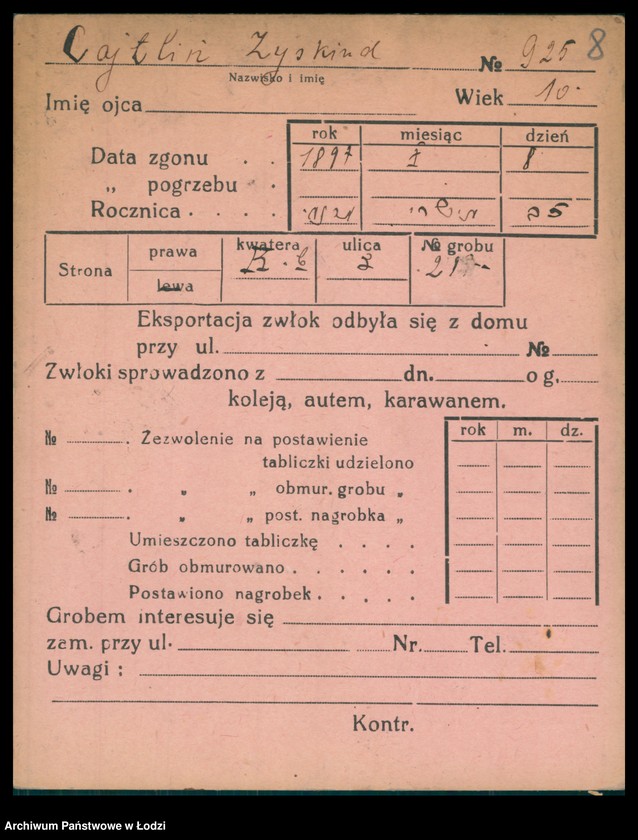 Cajtlin Zyskind № 925 8
Nazwisko i imię
Imię ojca Wiek 10
rok miesiąc dzień
Data zgonu . . 1897 I 8
„ pogrzebu .
Rocznica . . . .
Strona prawa kwatera ulica № grobu
lewa
Eksportacja zwłok odbyła się z domu
przy ul. №
Zwłoki sprowadzono z dn. o g.
koleją, autem, karawanem.
rok m. dz.
№ . Zezwolenie na postawienie
tabliczki udzielono
№ . „ „ obmur. grobu „
№ . „ „ post. nagrobka „
Umieszczono tabliczkę . . . .
Grób obmurowano . . . . . .
Postawiono nagrobek . . . . .
Grobem interesuje się
zam. przy ul. Nr. Tel.
Uwagi :
Kontr.
Archiwum Państwowe w Łodzi